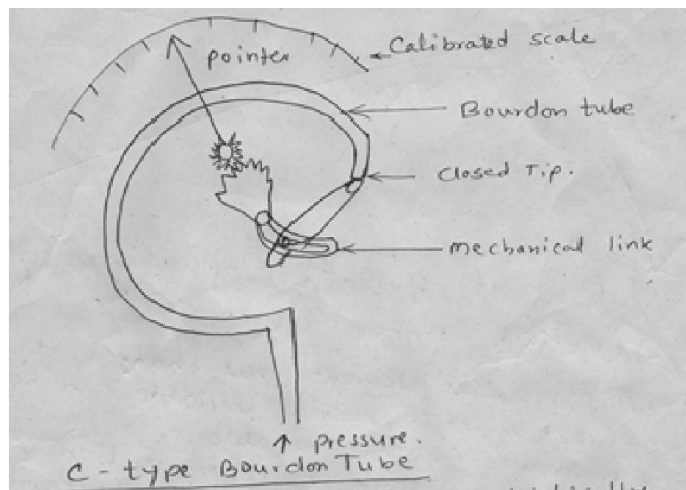 pointer
Calibrated scale
Bourdon tube
Closed Tip.
mechanical link
↑ pressure.
C - type Bourdon Tube